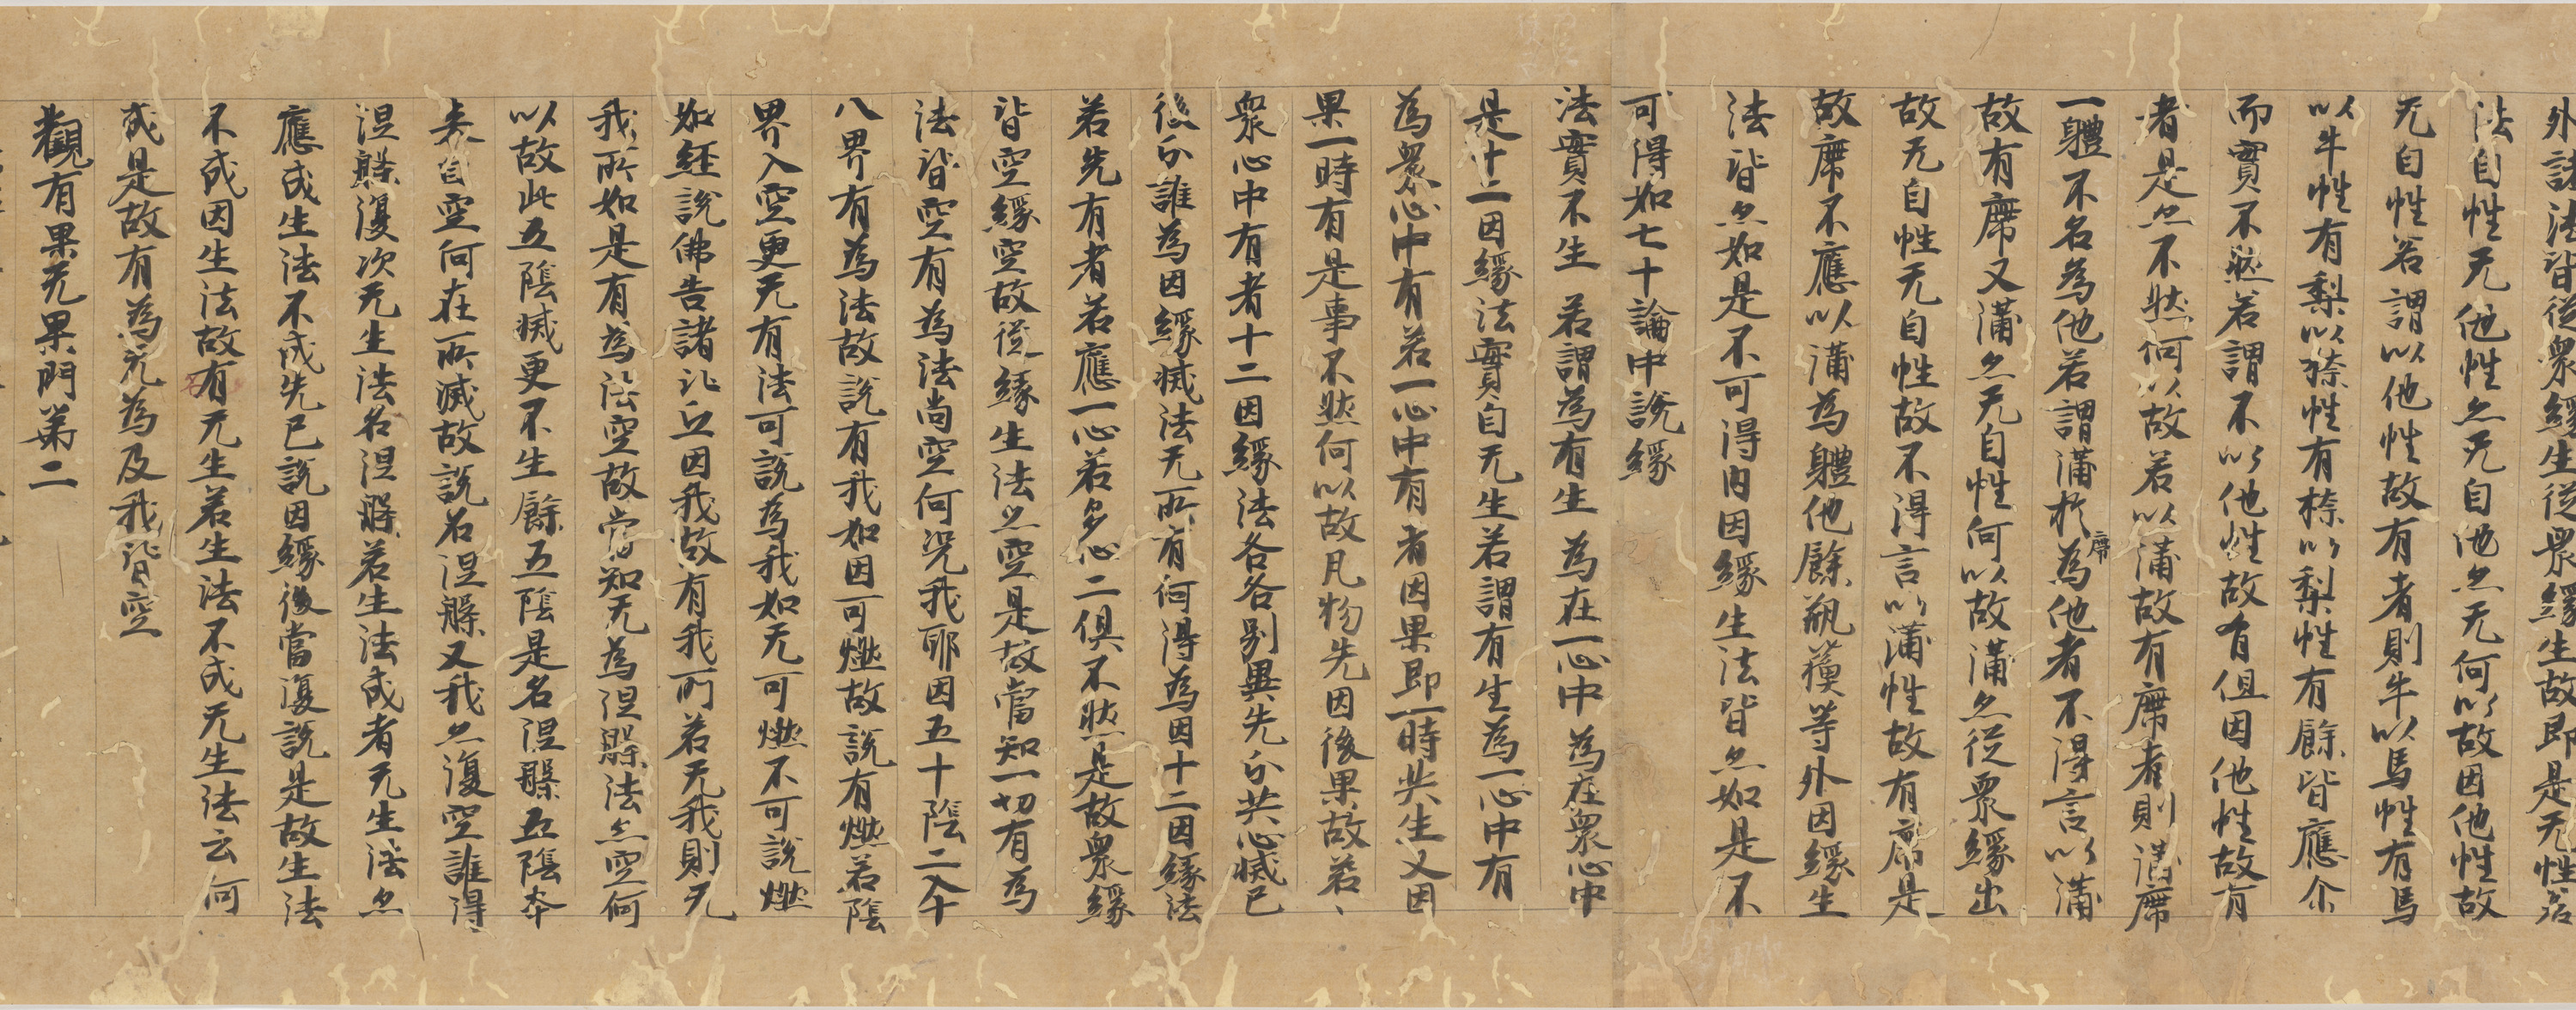 外諸法皆從衆緣生從衆緣生故即是无性若
法自性无他性亦无自他亦无何以故因他性故
无自性若謂以他性故有者則牛以馬性有馬
以牛性有梨以㮈性有㮈以梨性有餘皆應尒
而實不然若謂不以他性故有但因他性故有
者是亦不然何以故若以蒲故有席者則蒲席
一體不名為他若謂蒲於席為他者不得言以蒲
故有席又蒲亦无自性何以故蒲亦從衆緣出
故无自性无自性故不得言以蒲性故有席是
故席不應以蒲為體他餘瓶等外因緣生
法皆亦如是不可得内因緣生法皆亦如是不
可得如七十論中說緣
法實不生 若謂為有生 為在一心中 為在衆心中
是十二因緣法實自无生若謂有生為一心中有
為衆心中有若一心中有者因果即一時共生又因
果一時有是事不然何以故凡物先因後果故若、
衆心中有者十二因緣法各各別異先分共心滅已
後分誰為因緣滅法无所有何得為因十二因緣法
若先有者若應一心若多心二俱不然是故衆緣
皆空緣空故從緣生法亦空是故當知一切有為
法皆空有為法尚空何況我耶因五十陰二入十
八界有為法故說有我如因可燃故說有燃若陰
界入空更无有法可說為我如无可燃不可說燃
如經說佛告諸比丘因我故有我所若无我則无
我所如是有為法空故當知无為涅槃法亦空何
以故此五陰滅更不生餘五陰是名涅槃五陰本
來自空何在所滅故說名涅槃又我亦復空誰得
涅槃復次无生法名涅槃若生法成者无生法亦
應成生法不成先已說因緣後當復說是故生法
不成因生法故有无生若生法不成无生法云何
成是故有為无為及我皆空
觀有果无果門第二